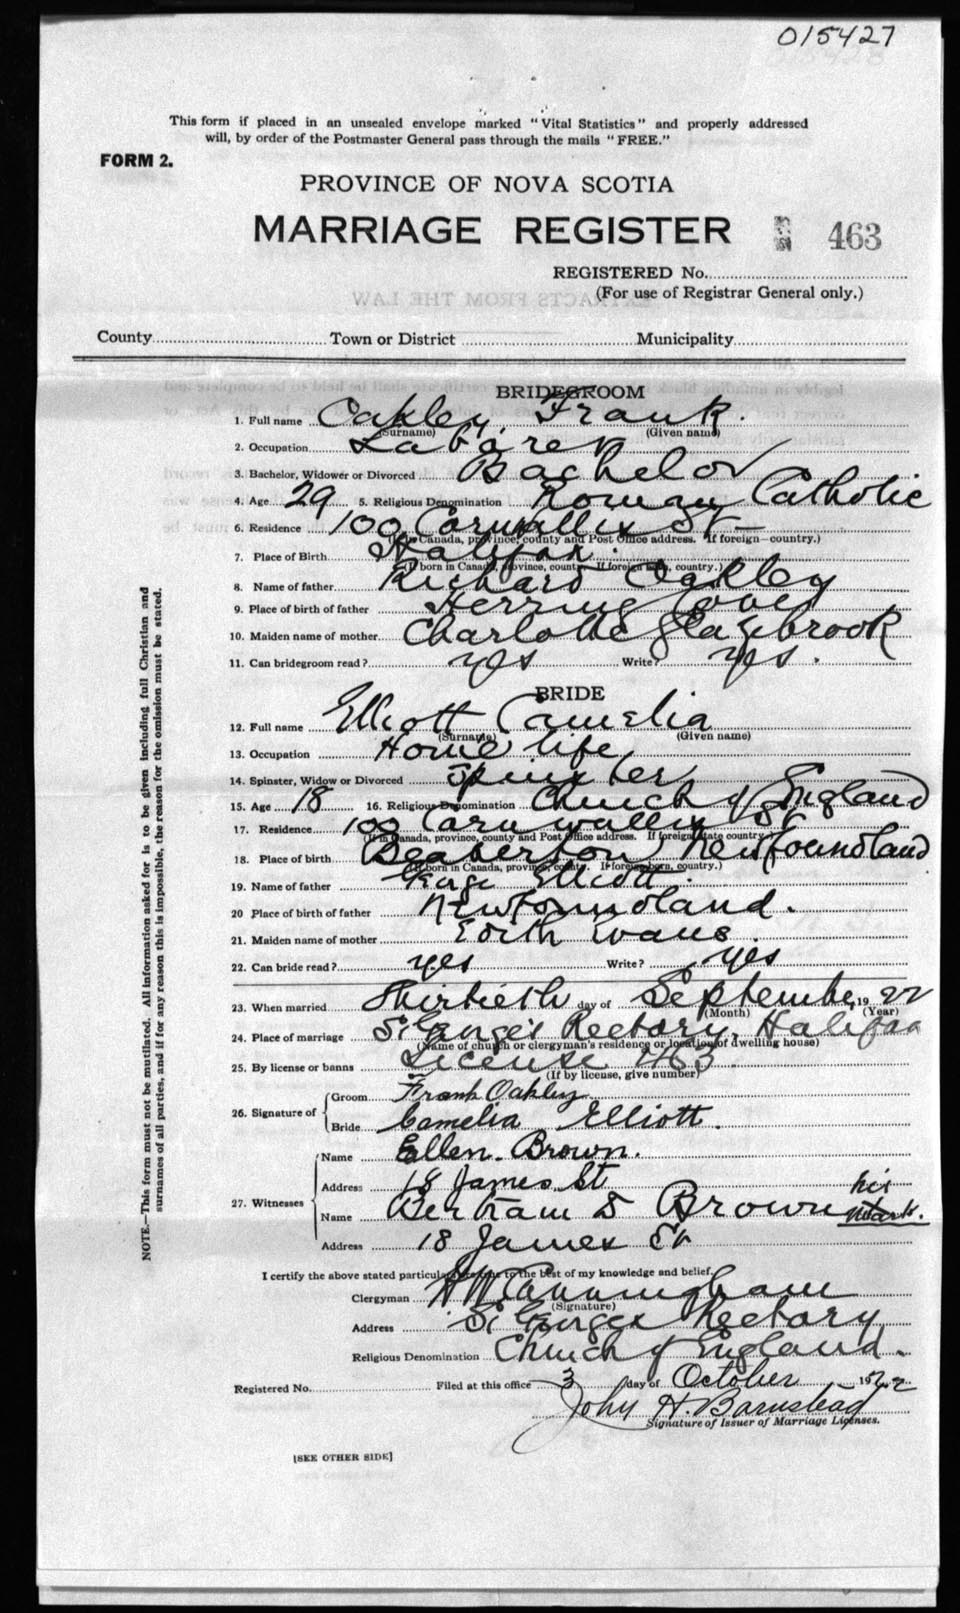 015427
This form if placed in an unsealed envelope marked "Vital Statistics" and properly addressed
will, by order of the Postmaster General pass through the mails "FREE."
FORM 2.
PROVINCE OF NOVA SCOTIA
MARRIAGE REGISTER 463
REGISTERED No.
(For use of Registrar General only.)
County Town or District Municipality
BRIDEGROOM
1. Full name Oakley, Frank.
(Surname) (Given name)
2. Occupation Laborer
3. Bachelor, Widower or Divorced Bachelor
4. Age 29 5. Religious Denomination Roman Catholic
6. Residence 100 Cornwallis St
(If in Canada, province, county and Post Office address. If foreign—country.)
7. Place of Birth Halifax.
(If born in Canada, province, county. If foreign born, country.)
8. Name of father Richard Oakley
9. Place of birth of father Herring Cove
10. Maiden name of mother Charlotte Glazebrook
11. Can bridegroom read? yes Write? yes.
BRIDE
12. Full name Elliott Camelia
(Surname) (Given name)
13. Occupation Home life
14. Spinster, Widow or Divorced Spinster
15. Age 18 16. Religious Denomination Church of England
17. Residence 100 Cornwallis St
(If in Canada, province, county and Post Office address. If foreign state country.)
18. Place of birth Beaverton Newfoundland
(If born in Canada, province, county. If foreign born, country.)
19. Name of father George Elliott.
20 Place of birth of father Newfoundland.
21. Maiden name of mother Edith Evans.
22. Can bride read? yes Write? yes
23. When married Thirtieth day of September 1922
(Month) (Year)
24. Place of marriage St George's Rectory, Halifax
(Name of church or clergyman's residence or location of dwelling house)
25. By license or banns License 463
(If by license, give number)
26. Signature of Groom Frank Oakley
Bride Camelia Elliott.
27. Witnesses Name Ellen. Brown.
Address 18 James St
Name Bertram S Brown his mark.
Address 18 James St
I certify the above stated particulars are true to the best of my knowledge and belief.
Clergyman H W Cunningham
(Signature)
Address St Georges Rectory
Religious Denomination Church of England.
Registered No. Filed at this office 3 day of October 1922
John H. Barnstead
Signature of Issuer of Marriage Licenses.
[SEE OTHER SIDE]
NOTE.—This form must not be mutilated. All information asked for is to be given including full Christian and
surnames of all parties, and if for any reason this is impossible, the reason for the omission must be stated.